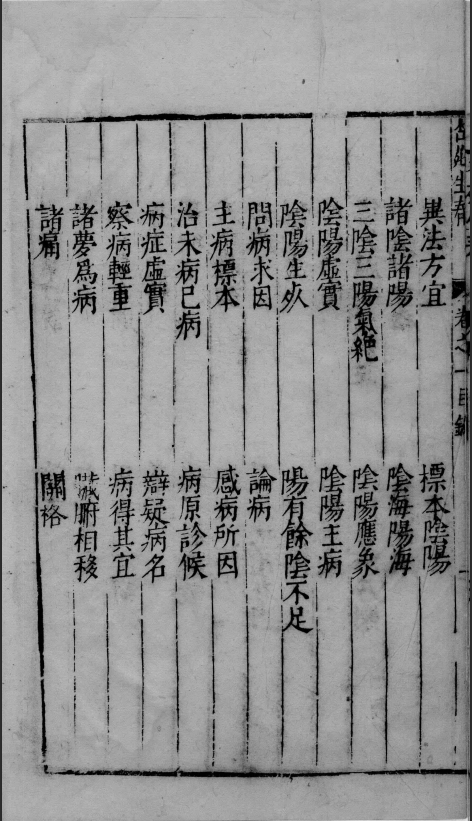 卷之一目錄
異法方宜
標本陰陽
諸陰諸陽
陰海陽海
三陰三陽氣絶
陰陽應象
陰陽虛實
陰陽主病
陰陽生死
陽有餘陰不足
問病求因
論病
主病標本
感病所因
治未病已病
病原診候
病症虛實
辯疑病名
察病輕重
病得其宜
諸夢爲病
臓腑相移
諸痛
關格